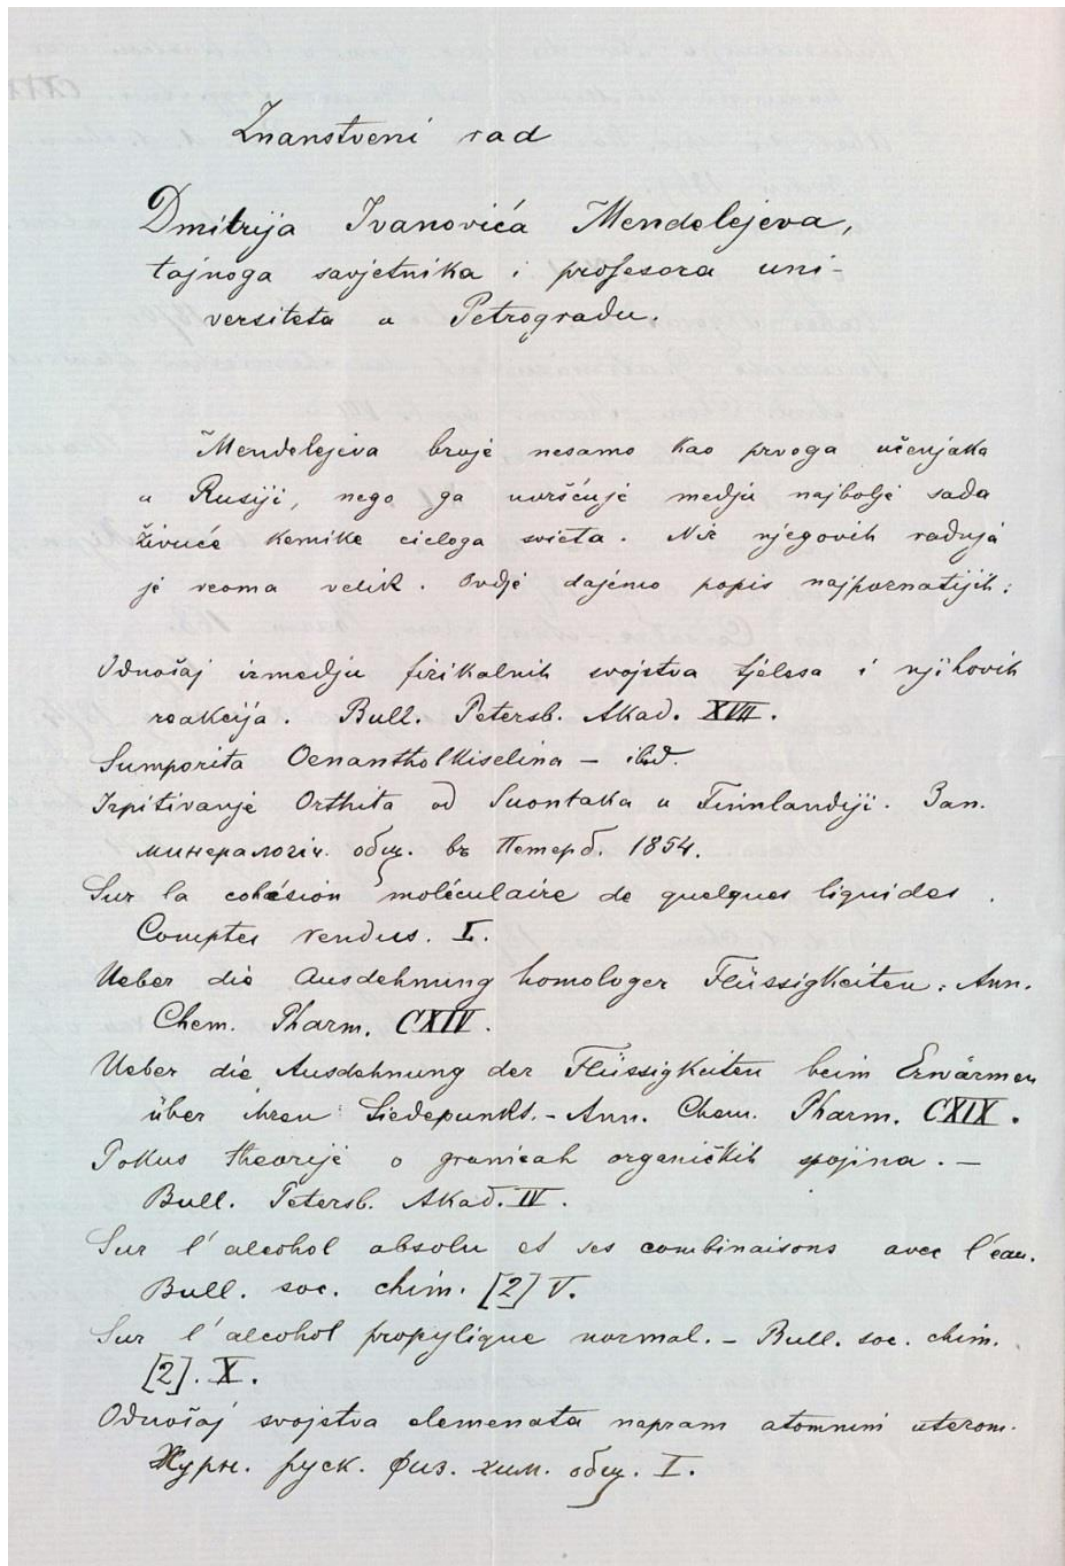 Znanstveni rad
Dmitrija Ivanovića Mendelejeva,
tajnoga savjetnika i profesora uni-
versiteta u Petrogradu.
Mendelejeva broje nesamo kao prvoga učenjaka
u Rusiji, nego ga uvršćuje medju najbolje sada
živuće kemike cieloga svieta. Niz njegovih radnja
je veoma velik. Ovdje dajemo popis najpoznatijih:
Odnošaj izmedju fizikalnih svojstva tjelesa i njihovih
reakcija. Bull. Petersb. Akad. XVII.
Sumporita Oenantholkiselina – ibid.
Izpitivanje Orthita od Suontaka u Finnlandiji. Зап.
минералогич. общ. въ Петерб. 1854.
Sur la cohésion moléculaire de quelques liquides.
Comptes rendus. L.
Ueber die Ausdehnung homologer Flüssigkeiten. Ann.
Chem. Pharm. CXIV.
Ueber die Ausdehnung der Flüssigkeiten beim Erwärmen
über ihren Siedepunkt. – Ann. Chem. Pharm. CXIX.
Pokus theorije o granicah organičkih spojina. –
Bull. Petersb. Akad. IV.
Sur l'alcohol absolu et ses combinaisons avec l'eau.
Bull. soc. chim. [2] V.
Sur l'alcohol propylique normal. – Bull. soc. chim.
[2]. X.
Odnošaj svojstva elemenata napram atomnim uterom.
Журн. руск. физ. хим. общ. I.